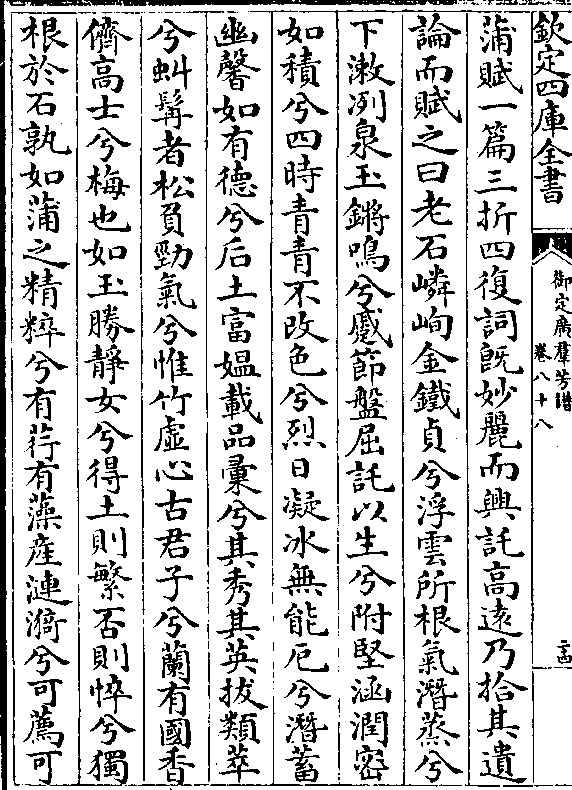 欽定四庫全書
御定廣羣芳譜
卷八十八
二十四
蒲賦一篇三折四復詞旣妙麗而興託高遠乃拾其遺
論而賦之曰老石嶙峋金鐵貞兮浮雲所根氣潛蒸兮
下漱冽泉玉鏘鳴兮蹙節盤屈託以生兮附堅涵潤密
如積兮四時青青不改色兮烈日凝冰無能厄兮潛蓄
幽馨如有德兮后土富媪載品彚兮其秀其英拔類萃
兮虯髯者松負勁氣兮惟竹虛心古君子兮蘭有國香
儕高士兮梅也如玉勝靜女兮得土則繁否則悴兮獨
根於石孰如蒲之精粹兮有荇有藻産漣漪兮可薦可